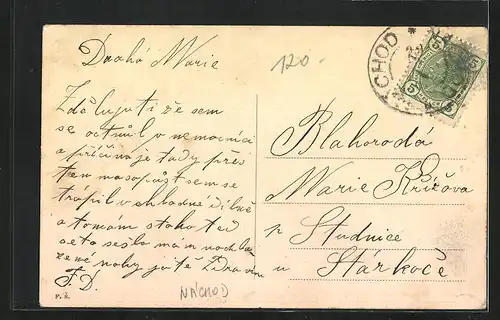 Drahá Marie
Zděluji ti že sem
se octnul v nemocnici
a příčina je tady přes
ten masopust sem se
trápil v chladné dílně
a to mám z toho teď
se to sešlo mám nachla
zené nohy já tě Zdravím
F. D.
120.-
CHOD
5 5
Blahorodá
Marie Křížova
p Studnice
u Stárkoče
NÁCHOD